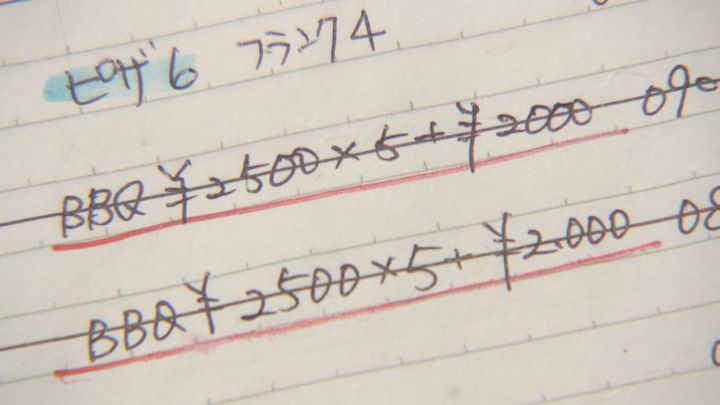 ピザ6 フランク4
BBQ ¥2500×5+¥2000 090
BBQ ¥2500×5+¥2.000 08